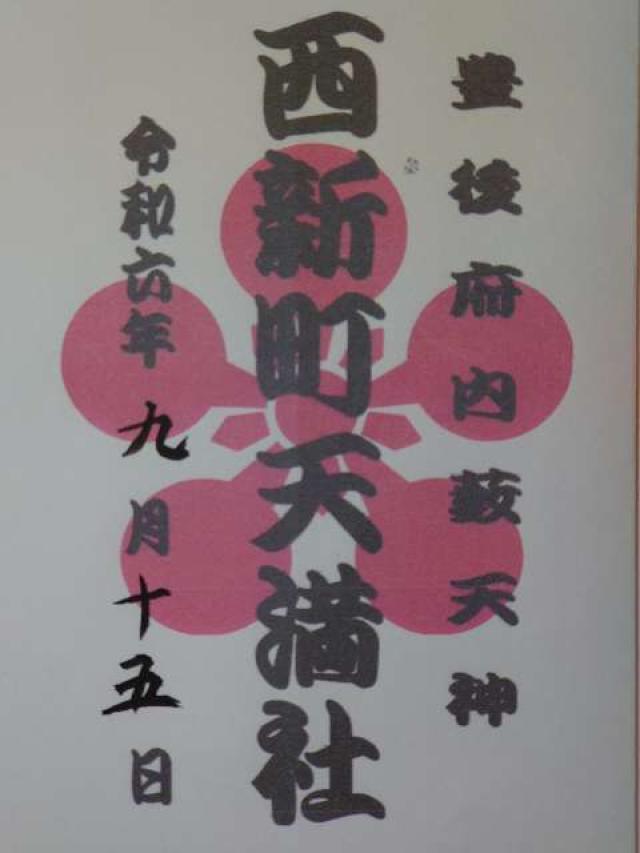 豊後府内薮天神
西新町天満社
令和六年九月十五日